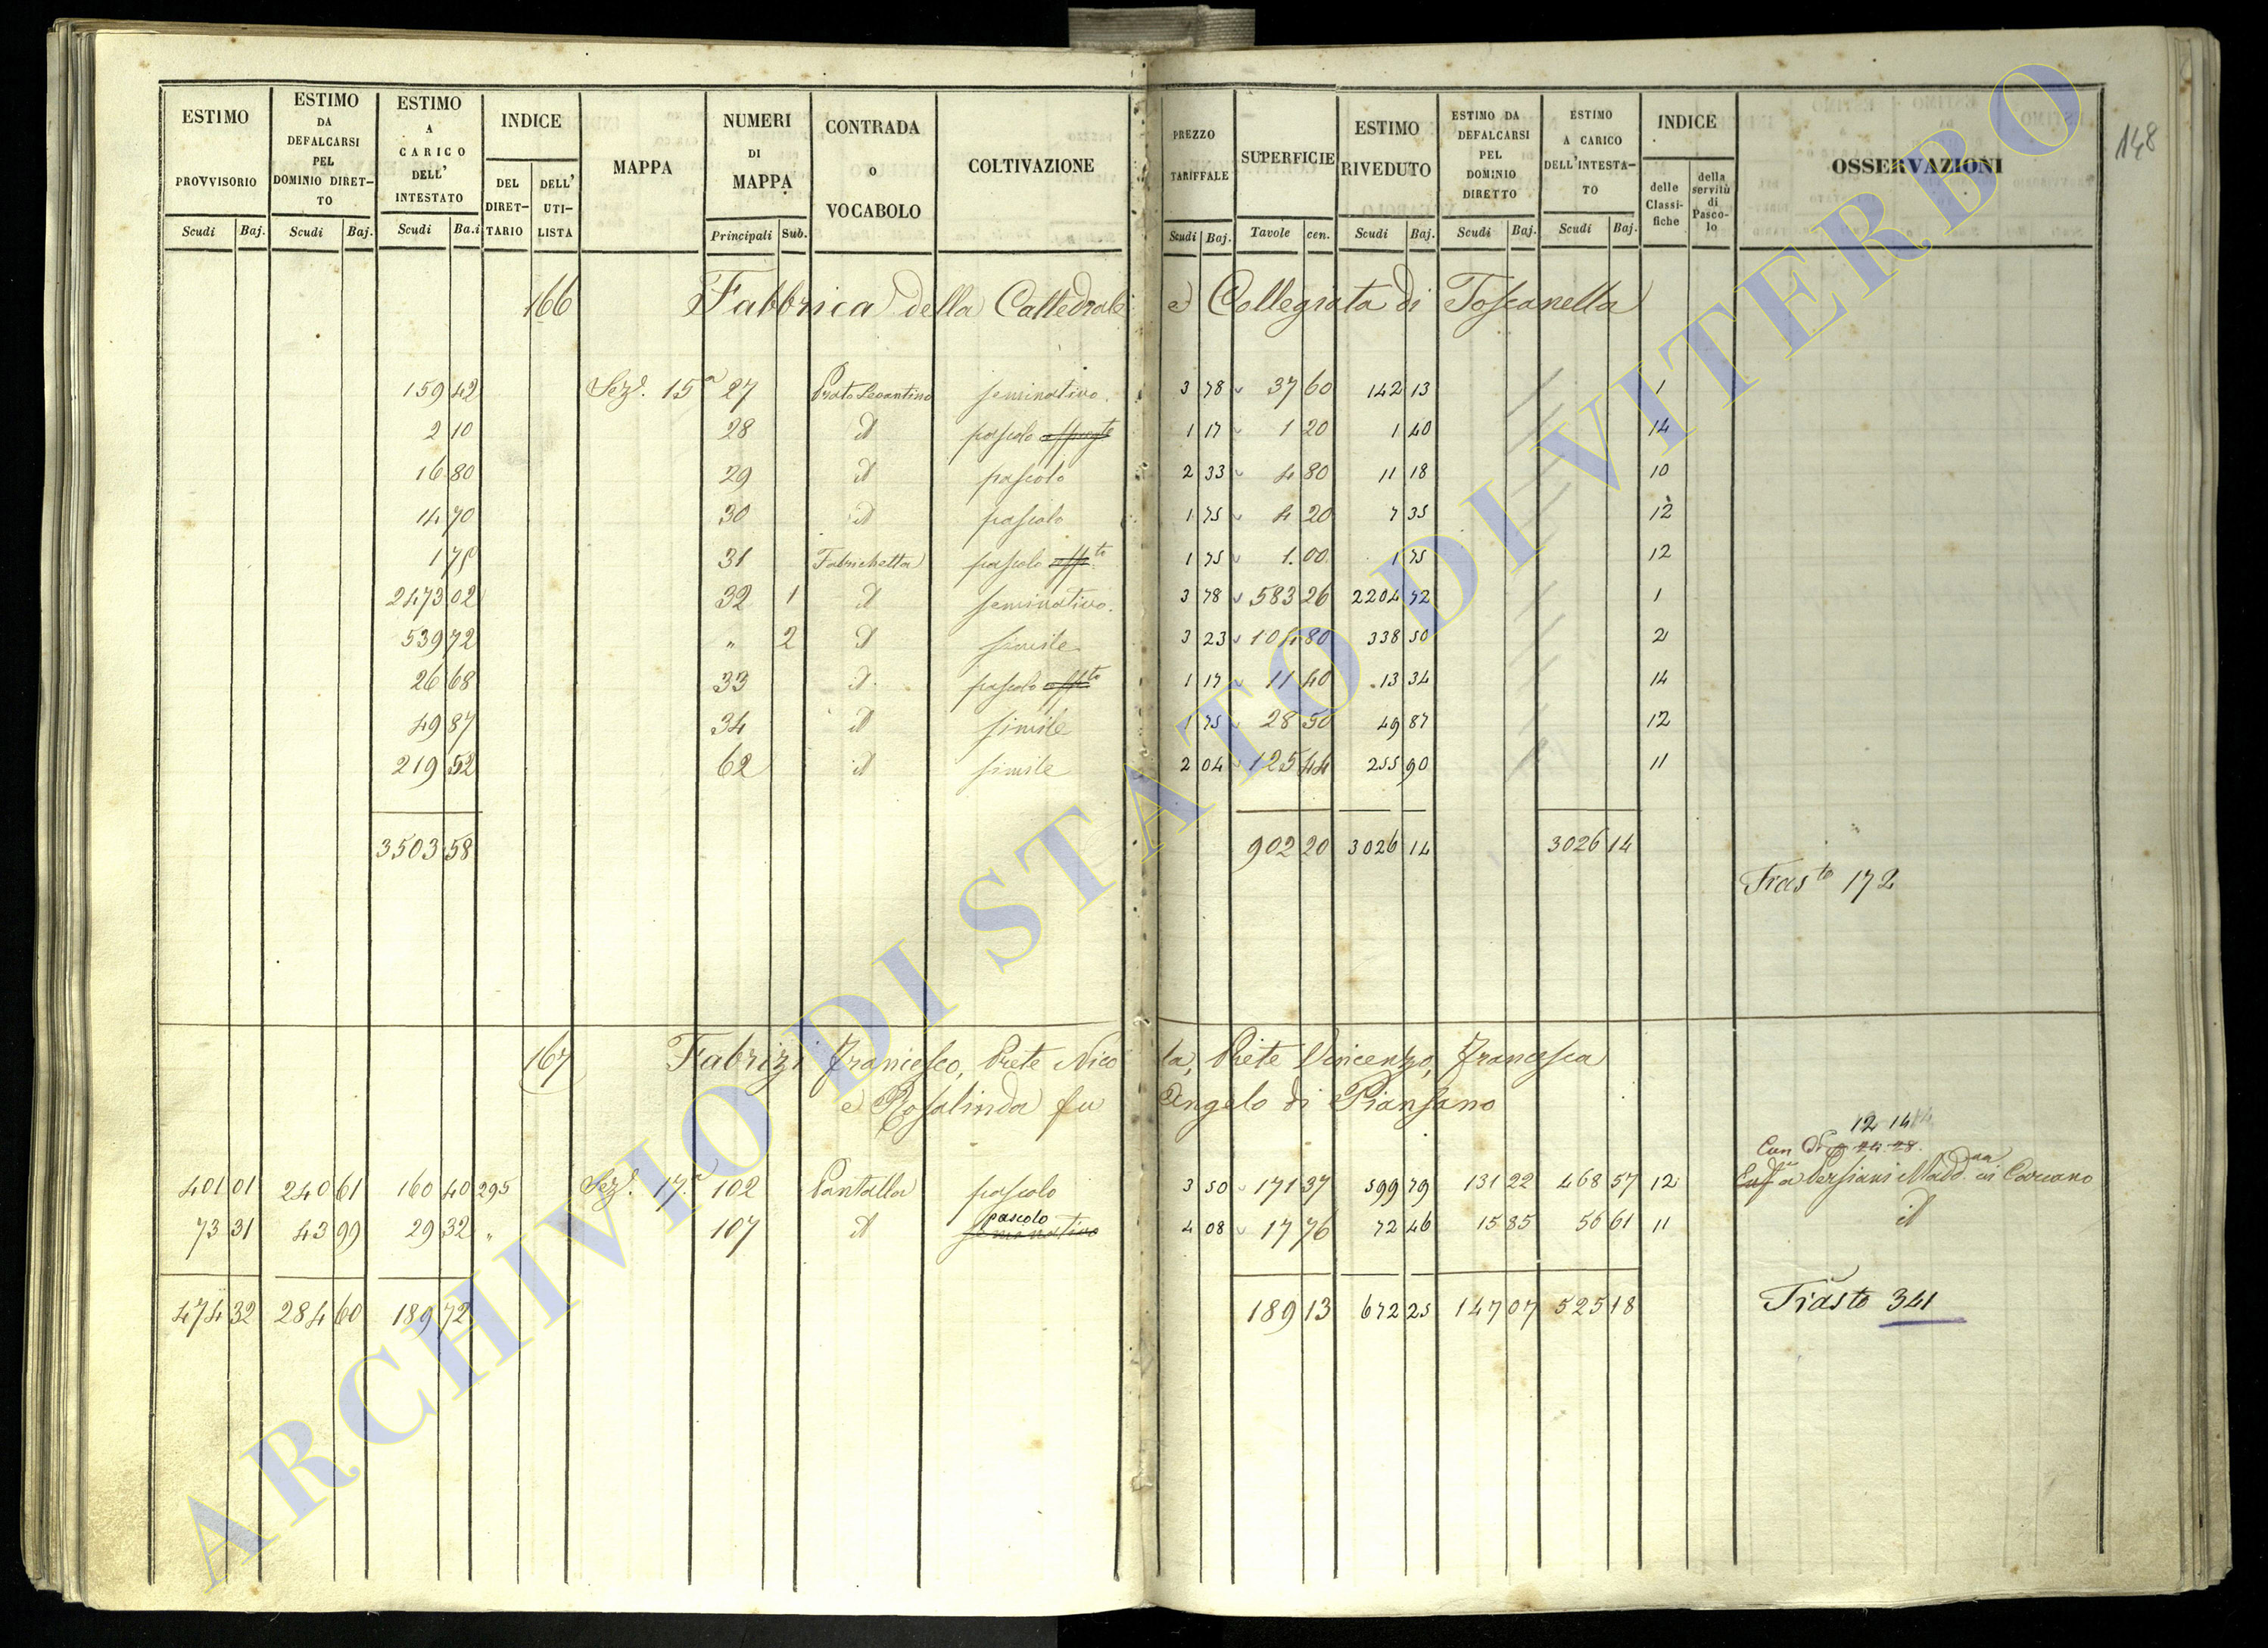 148
ESTIMO PROVVISORIO | ESTIMO DA DEFALCARSI PEL DOMINIO DIRETTO | ESTIMO A CARICO DELL' INTESTATO | INDICE | MAPPA | NUMERI DI MAPPA | CONTRADA O VOCABOLO | COLTIVAZIONE | PREZZO TARIFFALE | SUPERFICIE | ESTIMO RIVEDUTO | ESTIMO DA DEFALCARSI PEL DOMINIO DIRETTO | ESTIMO A CARICO DELL'INTESTATO | INDICE | OSSERVAZIONI
DEL DIRETTARIO | DELL' UTILISTA | delle Classifiche | della servitù di Pascolo
Scudi | Baj. | Scudi | Baj. | Scudi | Ba.i | Principali | Sub. | Scudi | Baj. | Tavole | cen. | Scudi | Baj. | Scudi | Baj. | Scudi | Baj.
166 Fabbrica della Cattedrale e Collegiata di Toscanella
159 42 Sez.e 15.a 27 Prato Levantino seminativo 3 78 37 60 142 13 1
2 10 28 id pascolo 1 17 1 20 1 40 14
16 80 29 id pascolo 2 33 4 80 11 18 10
14 70 30 id pascolo 1 75 4 20 7 35 12
1 75 31 Fabrichetta pascolo 1 75 1.00 1 75 12
2473 02 32 1 id seminativo. 3 78 583 26 2204 72 1
539 72 " 2 id simile 3 23 104 80 338 50 2
26 68 33 id pascolo 1 17 11 40 13 34 14
49 87 34 id simile 1 75 28 50 49 87 12
219 52 62 id simile 2 04 125 44 255 90 11
3503 58 902 20 3026 14 3026 14
Tras.to 172
167 Fabrizi Francesco, Prete Nicola, Prete Vincenzo, Francesca
e Rosalinda fu Angelo di Piansano
12 14
401 01 240 61 160 40 295 Sez.e 17.a 102 Pantalla pascolo 3 50 171 37 599 79 131 22 468 57 12 a Persiani Madd.na in Corcano
73 31 43 99 29 32 " 107 id pascolo seminativo 4 08 17 76 72 46 15 85 56 61 11 id
474 32 284 60 189 72 189 13 672 25 147 07 525 18 Trasto 341
ARCHIVIO DI STATO DI VITERBO